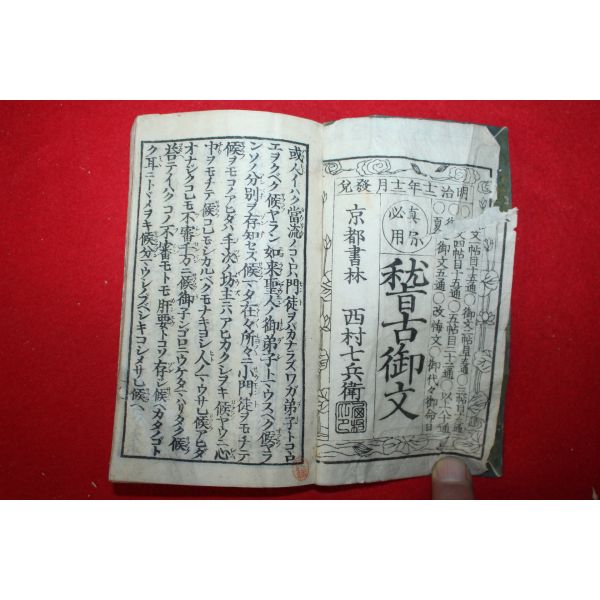 明治十年十二月發兌
眞宗
必用
文
一帖目十五通○御文二帖目五通○三帖目
四帖目十五通○五帖目二十二通以八十通
夏御文五通○改悔文○御代々御命日
稽古御文
京都書林 西村七兵衛
或人イハク當流ノコヽロハ門徒ヲバカナラズワガ弟子トコヽロ
エヲクベク候ヤラン如来聖人ノ御弟子トマウスベク候ヤラ
ンソノ分別ヲ存知セズ候マタ在々所々ニ小門徒ヲモチテ
候ヲモコノアヒダハ手次ノ坊主ニハアヒカクシヲキ候ヤウニ心
中ヲモチテ候コレモシカルベクモナキヨシ人ノマウサレ候アヒダ
オナジクコレモ不審千万ニ候御子ンゴロニウケタマハリタク候
荅テイハクコノ不審モトモ肝要トコソ存ジ候ヘカタノゴト
ク耳ニトヾメヲキ候分マウシノブベシキコシメサレ候ヘ